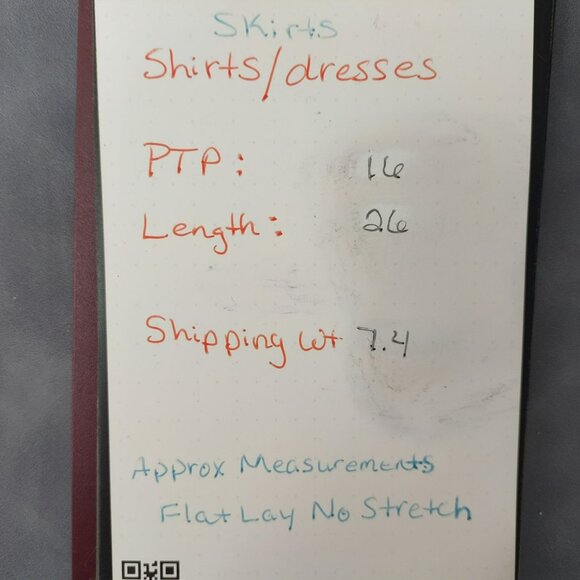 Skirts
Shirts/dresses
PTP: 16
Length: 26
Shipping Wt 7.4
Approx Measurements
Flat Lay No Stretch